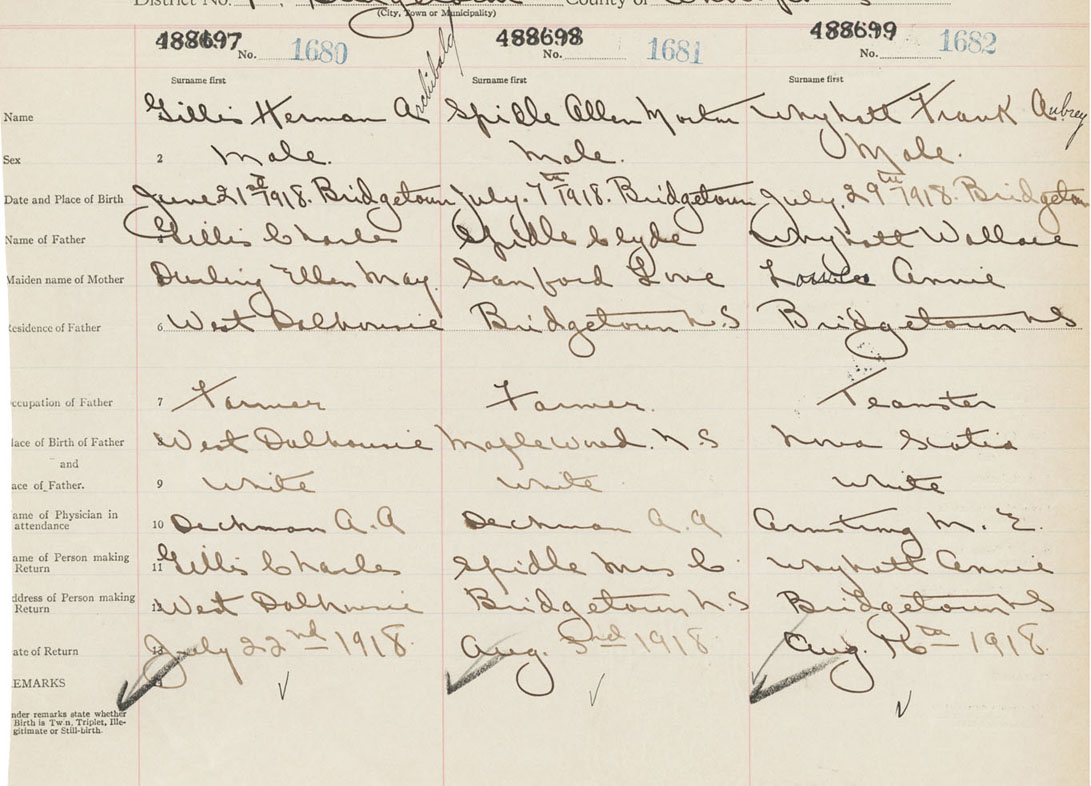 District No. Bridgetown County of
(City, Town or Municipality)
488697 488698 488699
No. 1680 No. 1681 No. 1682
Surname first Surname first Surname first
Name Gillis Herman Archibald Spidle Allen Morton Whynott Frank Aubrey
Sex 2 Male. Male. Male.
Date and Place of Birth June 21st 1918. Bridgetown July. 7th 1918. Bridgetown July. 29th 1918. Bridgetown
Name of Father Gillis Charles Spidle Clyde Whynott Wallace
Maiden name of Mother Durling Ellen May. Sanford Annie
Residence of Father 6 West Dalhousie Bridgetown N.S Bridgetown N S
ccupation of Father 7 Farmer Farmer. Teamster
lace of Birth of Father 8 West Dalhousie Maplewood. N S Nova Scotia
and
ace of Father. 9 White White White
ame of Physician in
attendance 10 Deckman A. A Deckman A. A Armstrong M. E.
ame of Person making
Return 11 Gillis Charles Spidle Mrs C. Whynott Annie
ddress of Person making
Return 12 West Dalhousie Bridgetown N.S Bridgetown N S
ate of Return 13 July 22nd 1918. Aug. 3rd 1918. Aug. 16th 1918.
EMARKS
nder remarks state whether
Birth is Twin, Triplet, Ille-
gitimate or Still-birth.